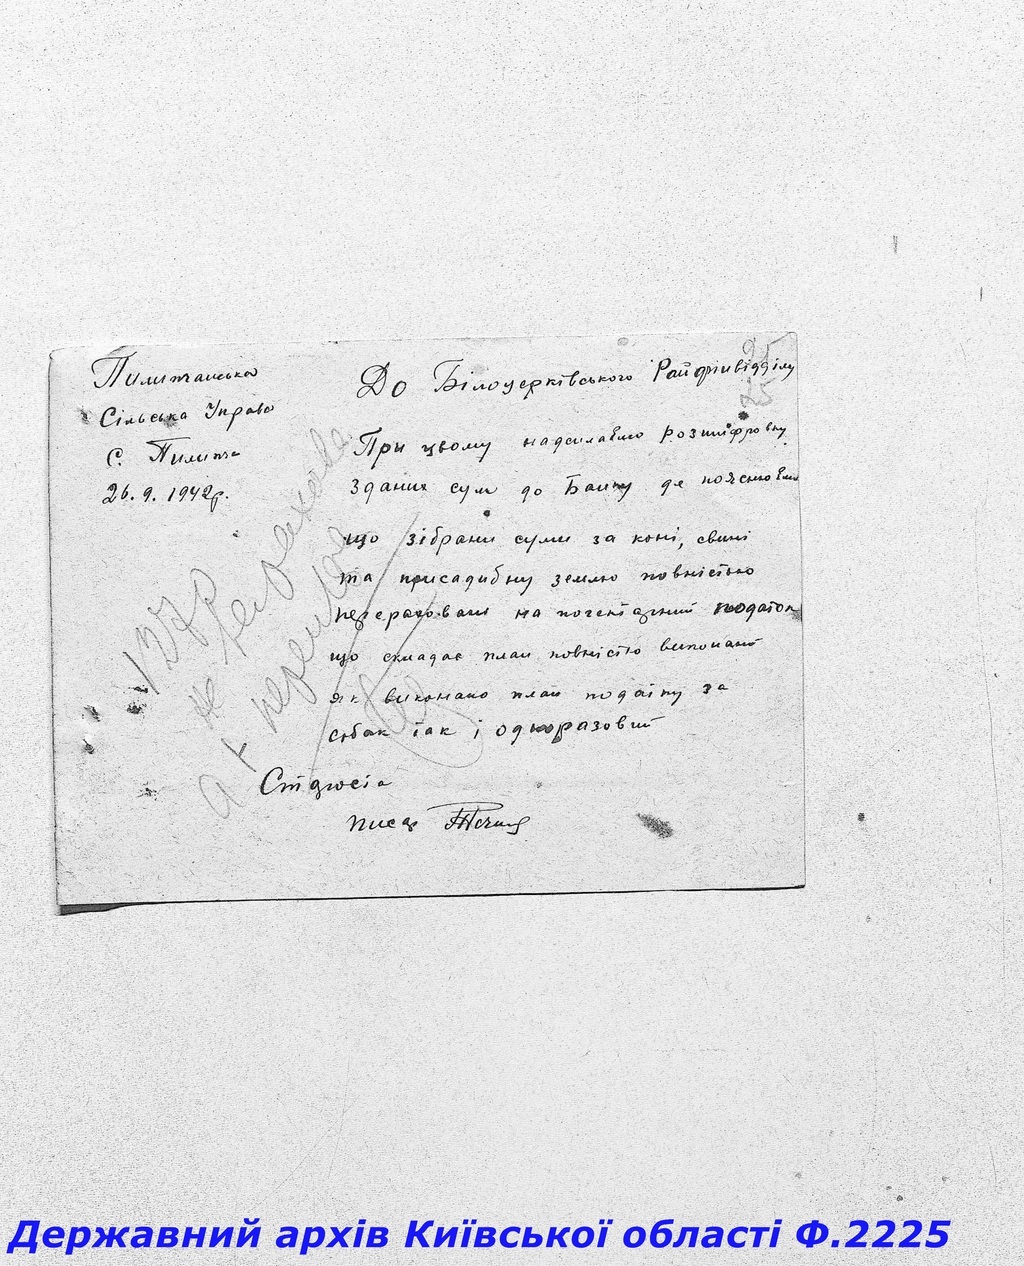 Пилипчанська
Сільська Управа
С. Пилипча
26.9.1942р.
До Білоцерківського Райфінвідділу
При цьому надсилаємо розшифровку
зданих сум до Банку де пояснюємо
що зібрани суми за коні, свині
та присадибну землю повністью
перераховані на поченьщений податок
що складає план повністю виконано
як виконано план податку за
собак так і одноразовий
Староста
писар
127 р
не
а
25
Державний архів Київської області Ф.2225